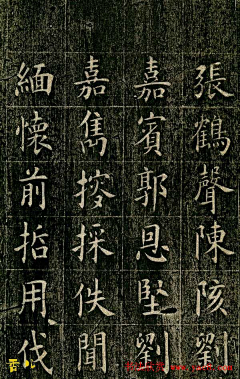 張鶴聲陳陔劉
嘉賓郭恩堅劉
嘉雋採佚聞
緬懷前括用伐